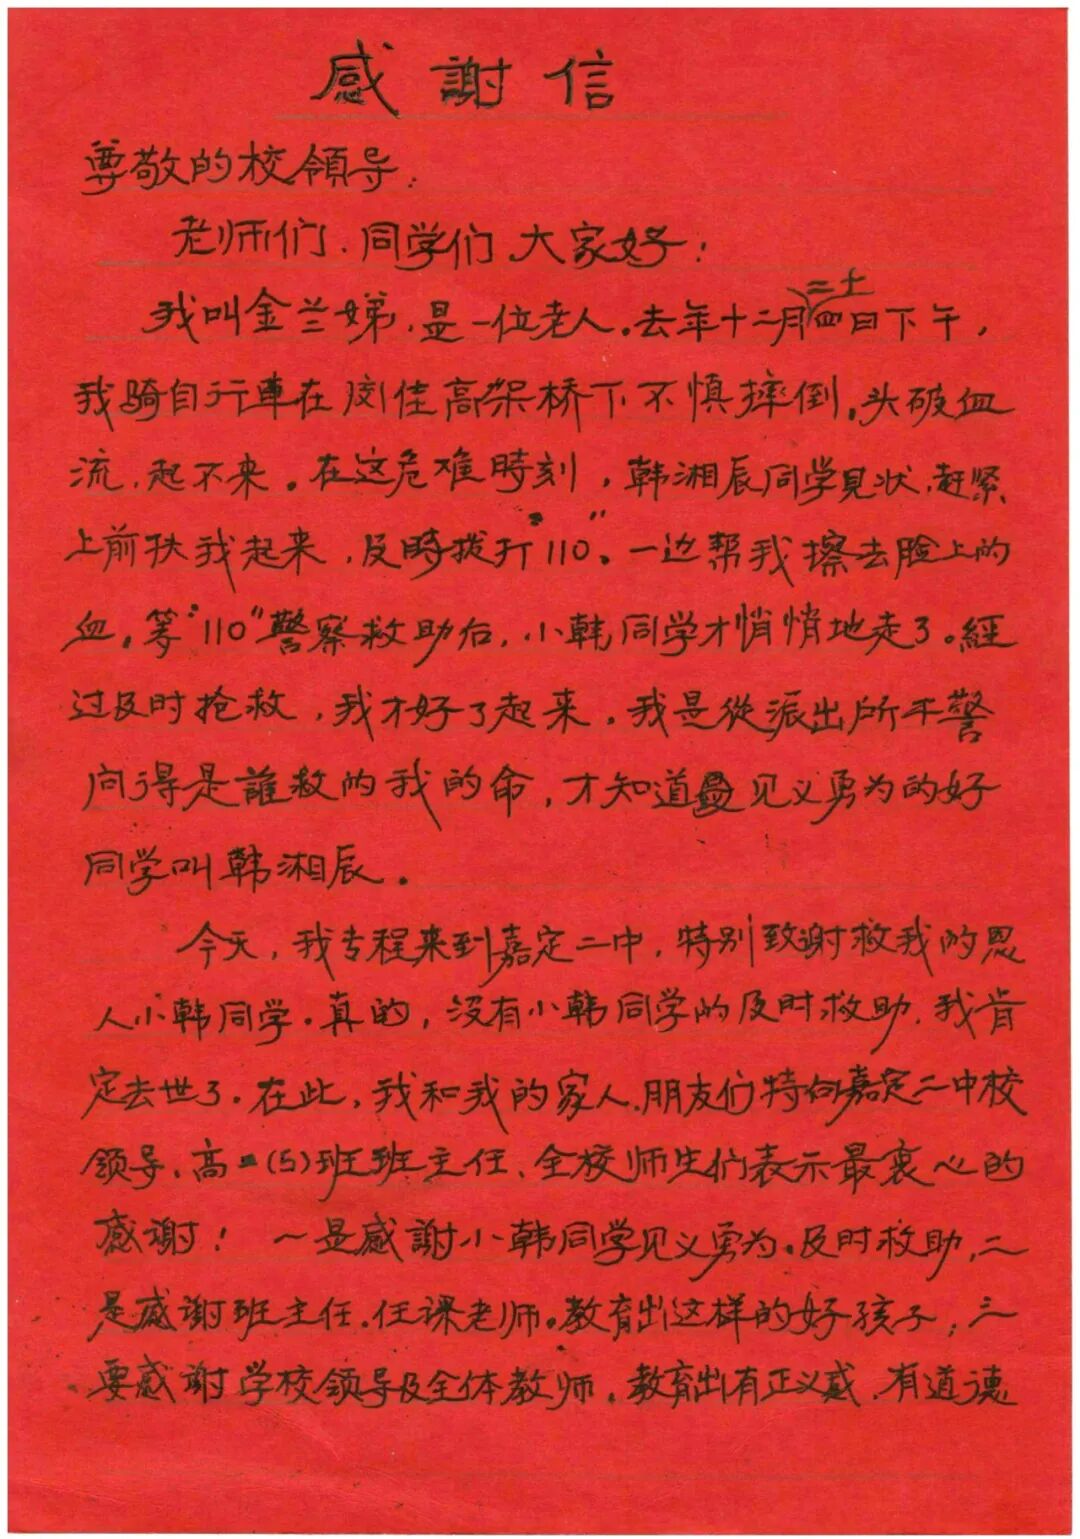 感謝信
尊敬的校領导:
老师们、同学们、大家好:
我叫金兰娣,是一位老人。去年十二月二十四日下午,
我骑自行車在浏佳高架桥下不慎摔倒,头破血
流,起不来。在这危难時刻,韩湘辰同学見状,赶紧
上前扶我起来,及時拨打"110"。一边帮我擦去脸上的
血,等"110"警察救助后,小韩同学才悄悄地走了。經
过及时抢救,我才好了起来。我是從派出所干警
问得是誰救的我的命,才知道见义勇为的好
同学叫韩湘辰。
今天,我专程来到嘉定二中,特别致谢救我的恩
人小韩同学。真的,没有小韩同学的及时救助,我肯
定去世了。在此,我和我的家人、朋友们特向嘉定二中校
领导、高二(5)班班主任、全校师生们表示最衷心的
感谢! 一是感謝小韩同学见义勇为。及时救助,二
是感谢班主任、任课老师。教育出这样的好孩子,三
要感谢学校领导及全体教师。教育出有正义感、有道德